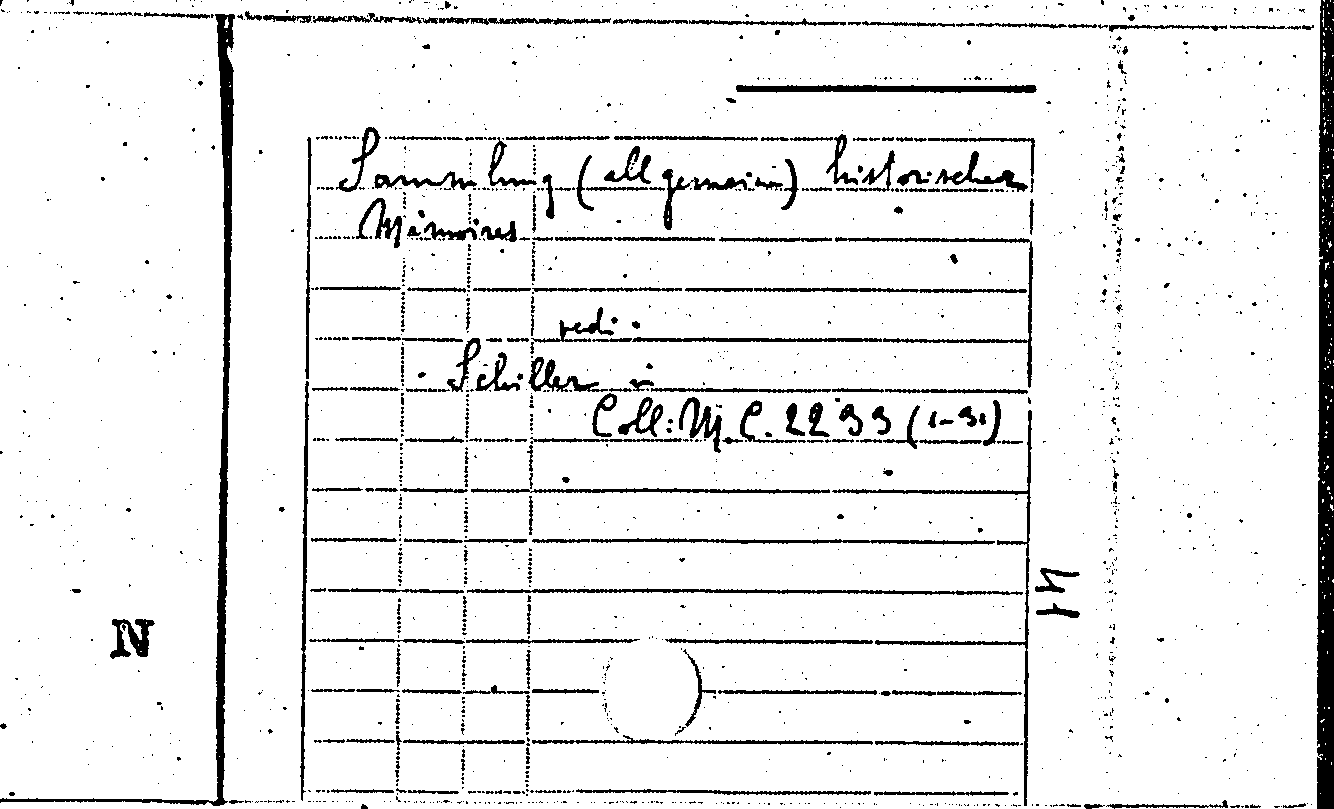 Sammlung (allgemain) historischer
Mémoires
vedi.
Schiller in
Coll: M. C. 2233 (1-31)
N